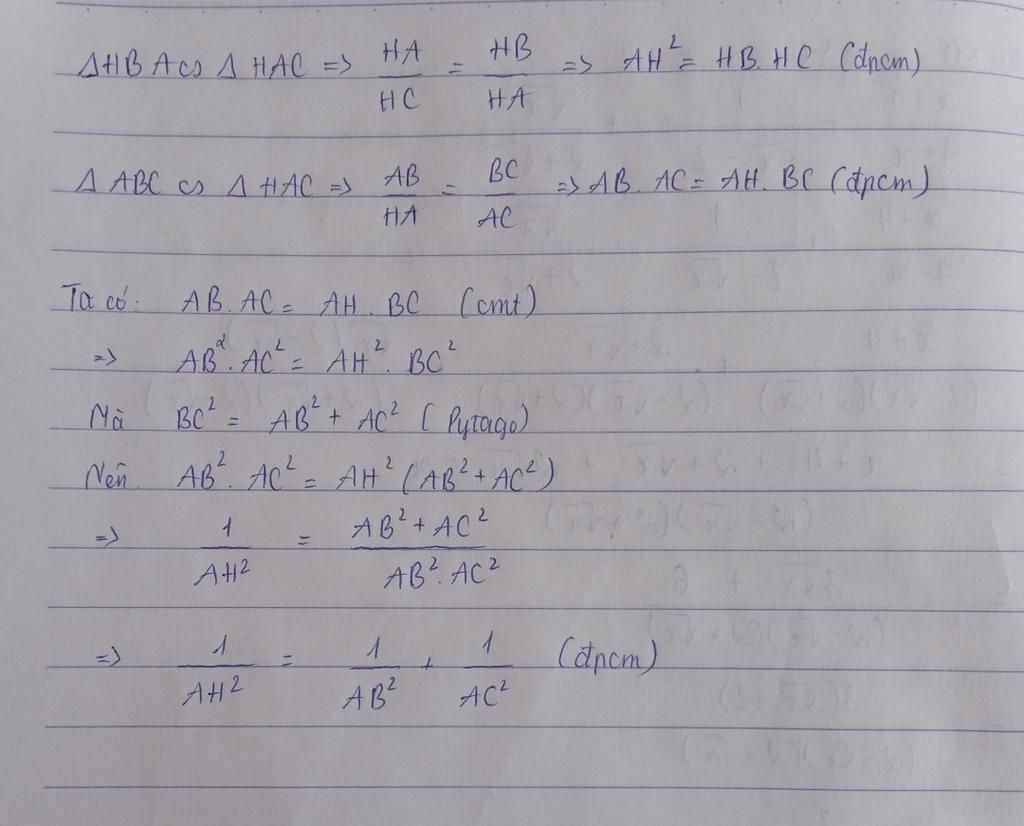 ΔHBA ∽ ΔHAC => HA/HC = HB/HA => AH² = HB.HC (đpcm)
ΔABC ∽ ΔHAC => AB/HA = BC/AC => AB.AC = AH.BC (đpcm)
Ta có: AB.AC = AH.BC (cmt)
=> AB².AC² = AH².BC²
Mà BC² = AB² + AC² (Pytago)
Nên AB².AC² = AH²(AB² + AC²)
=> 1/AH² = AB² + AC²/AB².AC²
=> 1/AH² = 1/AB² + 1/AC² (đpcm)